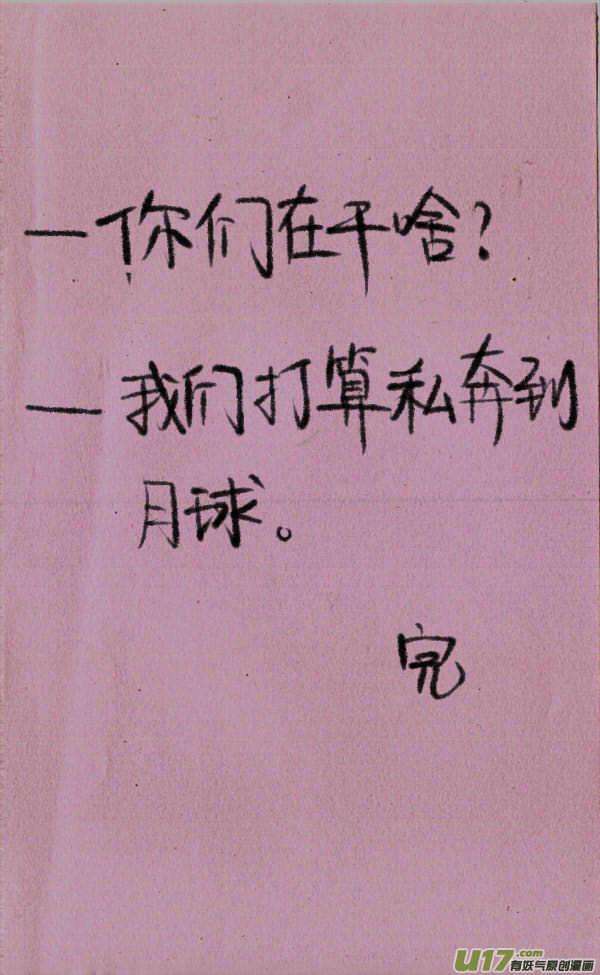 —你们在干啥?
—我们打算私奔到
月球。
完
U17.com
有妖气原创漫画